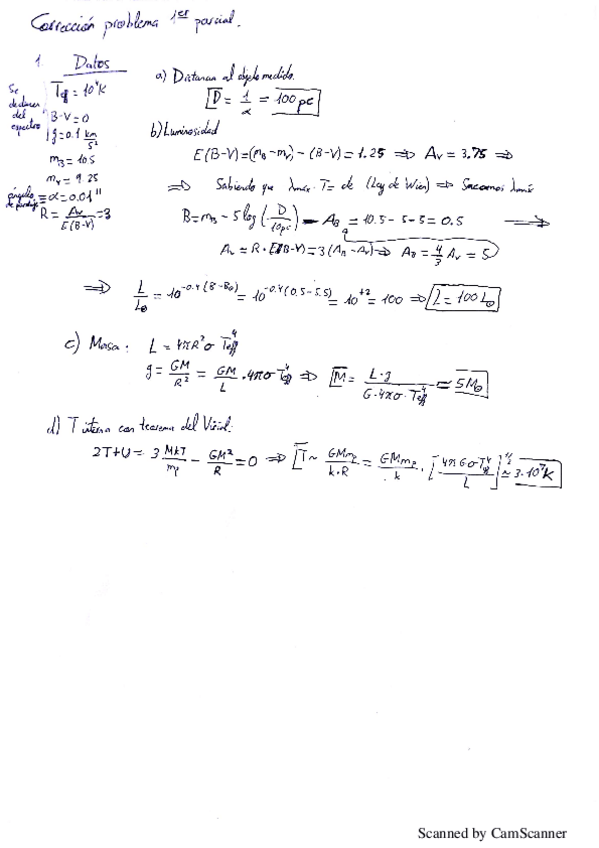 Corrección problema 1er parcial.
1. Datos
Se deducen del espectro
Teff = 10⁴K
B-V=0
g=0.1 km/s²
mB = 10.5
mV = 9.25
ángulo de paralaje ≡ α=0.01"
R = AV/E(B-V) = 3
a) Distancia al objeto medido.
D = 1/α = 100 pc
b) Luminosidad
E(B-V)=(mB-mV) - (B-V)=1.25 ⇒ AV = 3.75 ⇒
⇒ Sabiendo que λmax·T= cte (Ley de Wien) ⇒ Sacamos λmáx
B= mB - 5log(D/10pc) - AB = 10.5 - 5 - 5 = 0.5 ⇒
AV = R·E(B-V) = 3(AB - AV) ⇒ AB = 4/3 AV = 5
⇒ L/L⊙ = 10^-0.4(B-B⊙) = 10^-0.4(0.5-5.5) = 10^+2 = 100 ⇒ L = 100 L⊙
c) Masa: L = 4πR²σ Teff⁴
g = GM/R² = GM/L · 4πσ Teff⁴ ⇒ M = L·g/(G·4πσ·Teff⁴) ≃ 5M⊙
d) T interna con teorema del Virial.
2T+U = 3 MkT/mp - GM²/R = 0 ⇒ T ~ GMmp/k·R = GMmp/k · [4πGσT⁴eff/L]^1/2 ≃ 3·10⁷K
Scanned by CamScanner